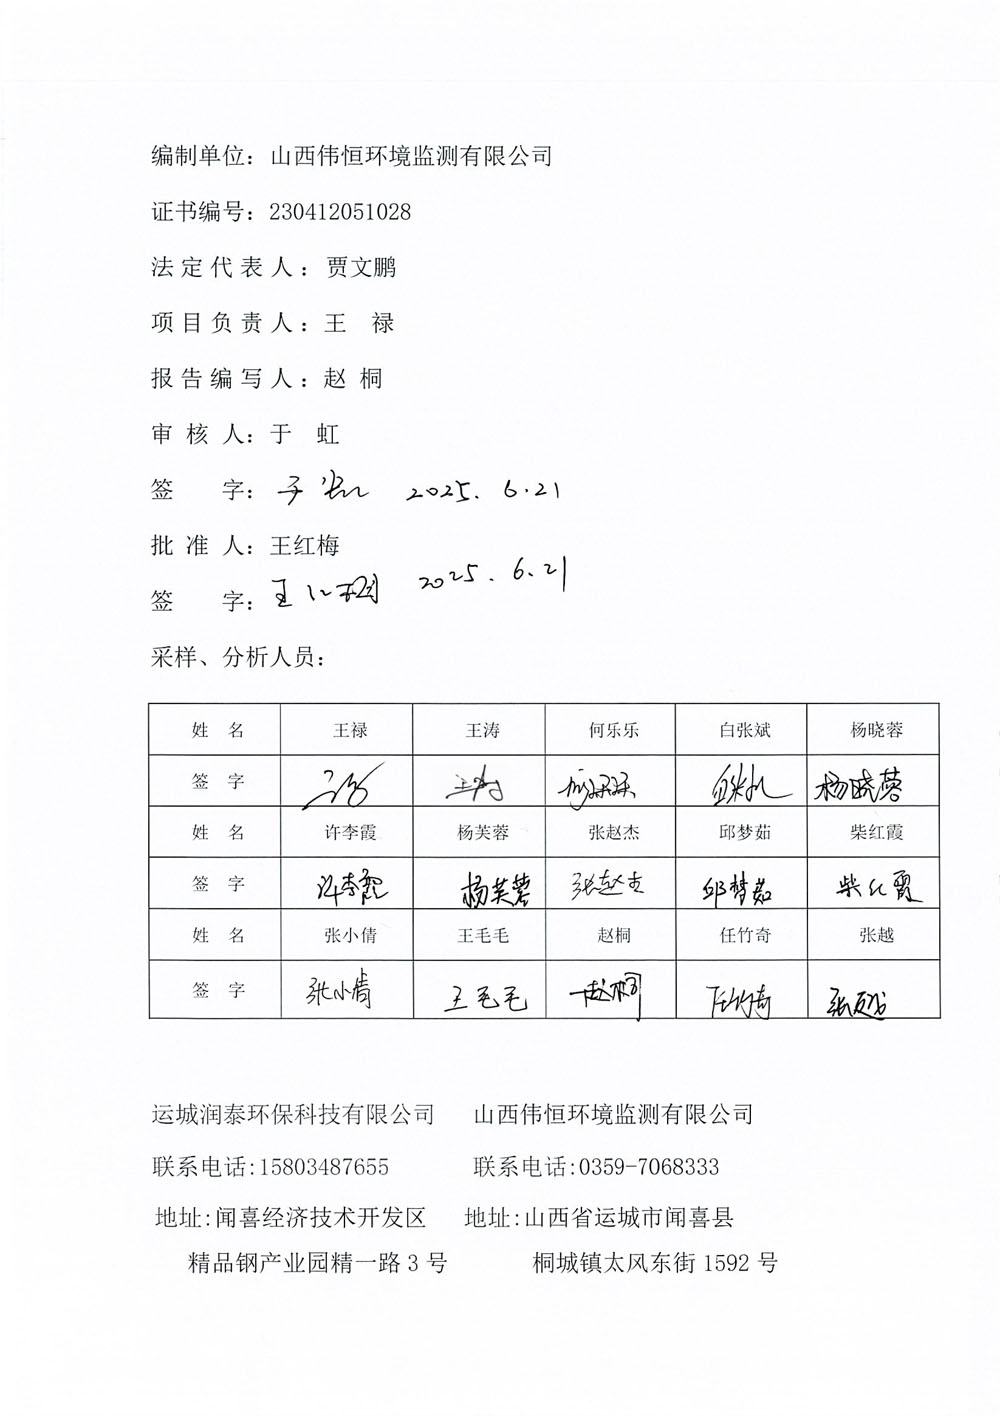 编制单位：山西伟恒环境监测有限公司
证书编号：230412051028
法定代表人：贾文鹏
项目负责人：王 禄
报告编写人：赵 桐
审 核 人：于 虹
签 字：于虹 2025.6.21
批 准 人：王红梅
签 字：王红梅 2025.6.21
采样、分析人员：
姓 名 王禄 王涛 何乐乐 白张斌 杨晓蓉
签 字 王禄 王涛 何乐乐 杨晓蓉
姓 名 许李霞 杨芙蓉 张赵杰 邱梦茹 柴红霞
签 字 许李霞 杨芙蓉 张赵杰 邱梦茹 柴红霞
姓 名 张小倩 王毛毛 赵桐 任竹奇 张越
签 字 张小倩 王毛毛 赵桐 任竹奇 张越
运城润泰环保科技有限公司 山西伟恒环境监测有限公司
联系电话:15803487655 联系电话:0359-7068333
地址:闻喜经济技术开发区 地址:山西省运城市闻喜县
精品钢产业园精一路 3 号 桐城镇太风东街 1592 号